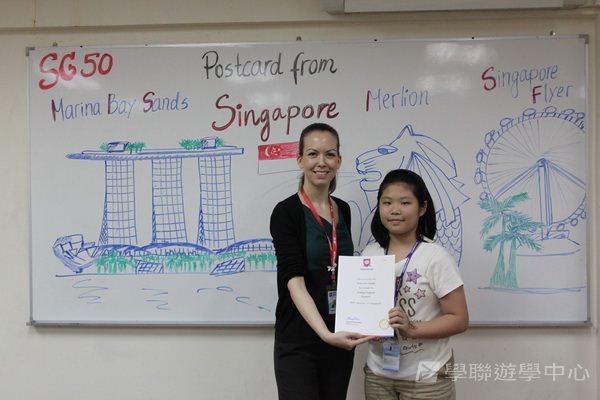 SG50
Postcard from
Singapore
Marina Bay Sands
Merlion
Singapore
Flyer
學聯遊學中心